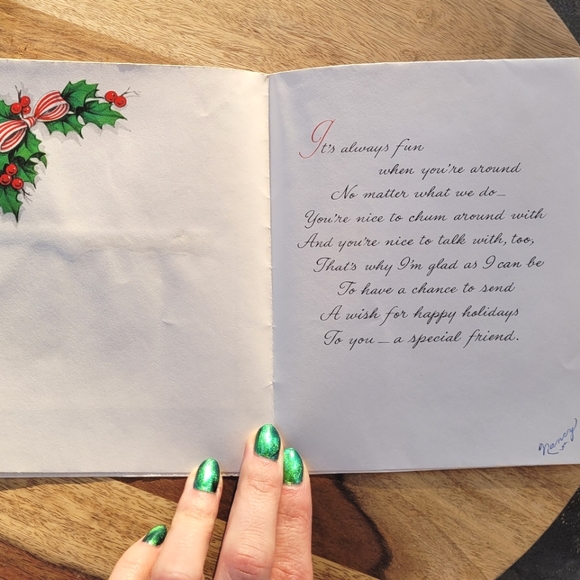 It's always fun
when you're around
No matter what we do—
You're nice to chum around with
And you're nice to talk with, too,
That's why I'm glad as I can be
To have a chance to send
A wish for happy holidays
To you — a special friend.
Nancy